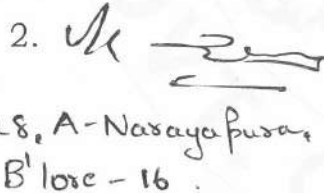 2.
8, A-Narayapura,
B'lore - 16.